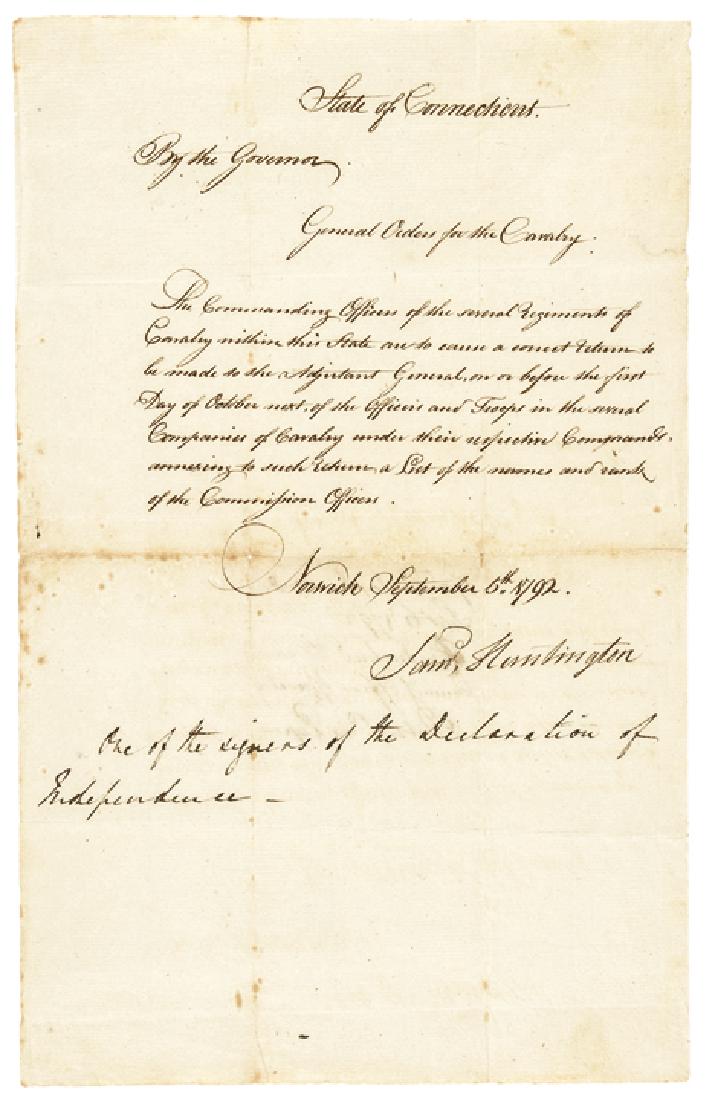 State of Connecticut.
By the Governor.
General Orders for the Cavalry.
The Commanding Officers of the several Regiments of
Cavalry within this State are to cause a correct return to
be made to the Adjutant General, on or before the first
Day of October next, of the Officers and Troops in the several
Companies of Cavalry under their respective Commands.
annexing to such return, a List of the names and rank
of the Commission Officers.
Norwich September 6th. 1792.
Saml. Huntington
One of the signers of the Declaration of
Independence –